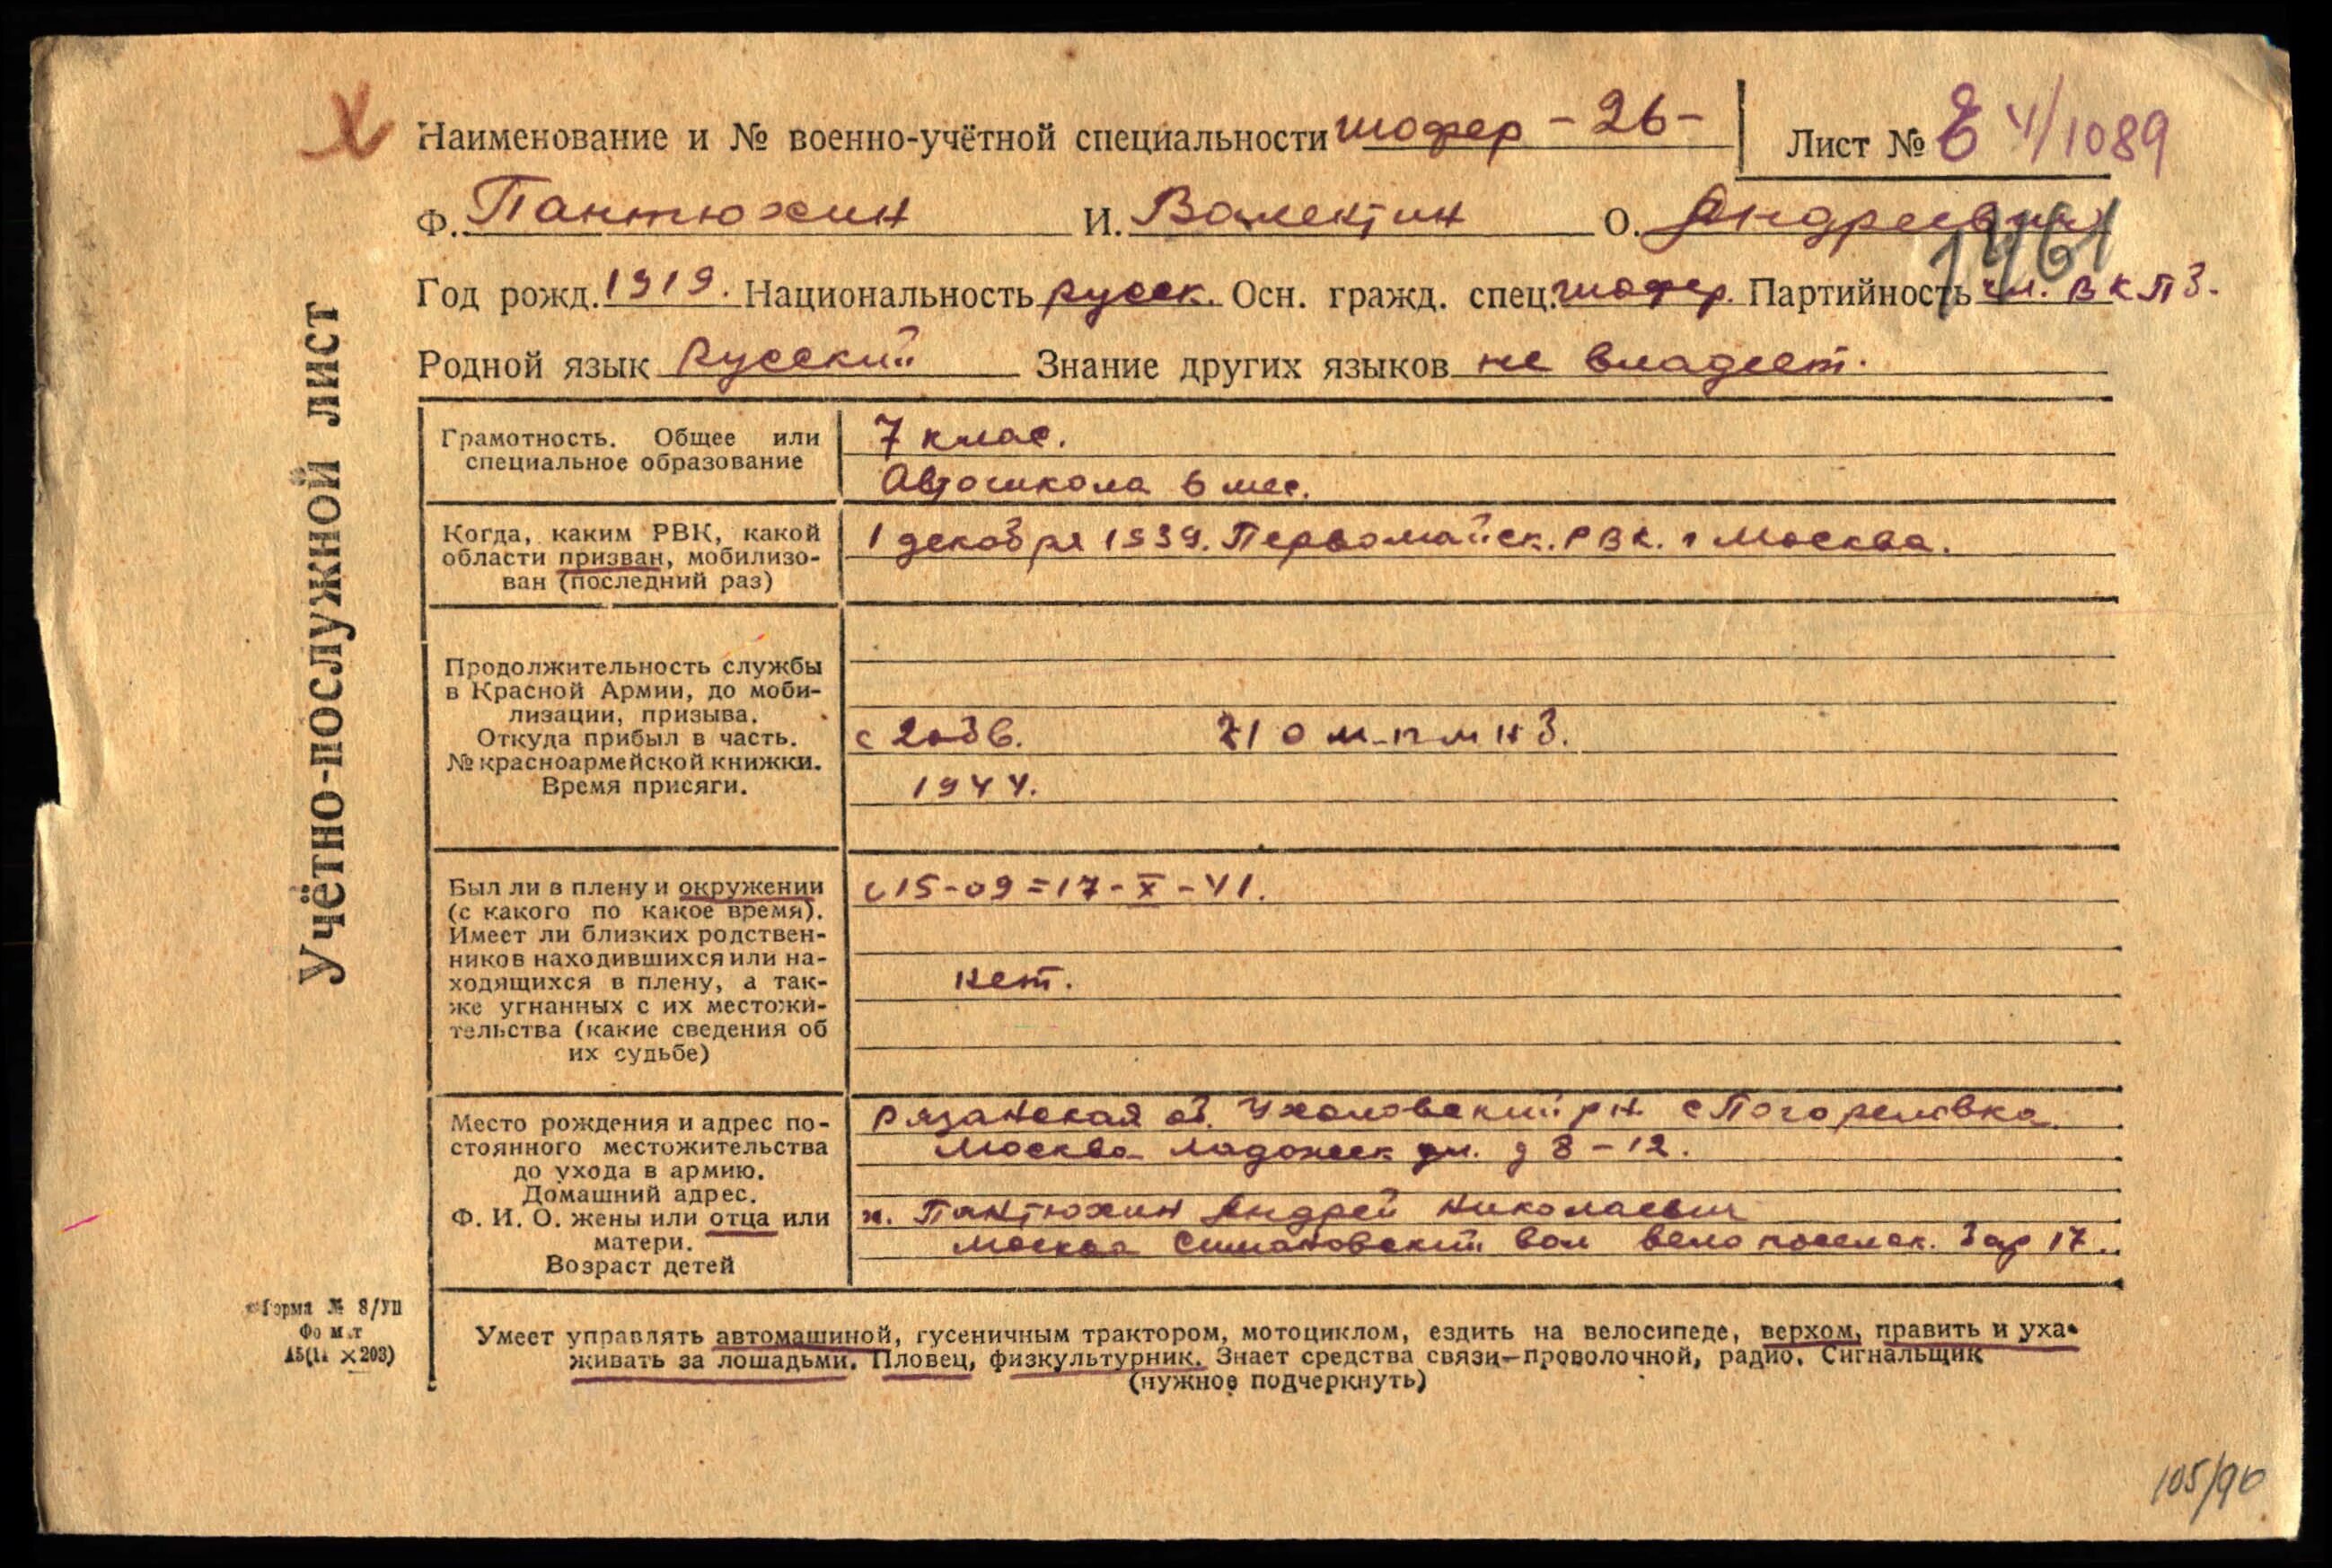 Учётно-послужной лист
Наименование и № военно-учётной специальности шофер - 26 - Лист № 4/1089
Ф. Пантюхин И. Валентин О. Андреевич
1761
Год рожд. 1919. Национальность русск. Осн. гражд. спец. шофер. Партийность чл. ВКПб.
Родной язык Русский Знание других языков не владеет.
Грамотность. Общее или специальное образование
7 клас.
Автошкола 6 мес.
Когда, каким РВК, какой
области призван, мобилизо-
ван (последний раз)
1 декабря 1939. Первомайск. РВК. г Москва.
Продолжительность службы
в Красной Армии, до моби-
лизации, призыва.
Откуда прибыл в часть.
№ красноармейской книжки.
Время присяги.
1944.
Был ли в плену и окружении
(с какого по какое время).
Имеет ли близких родствен-
ников находившихся или на-
ходящихся в плену, а так-
же угнанных с их местожи-
тельства (какие сведения об
их судьбе)
с 15-09=17-X-41.
нет.
Место рождения и адрес по-
стоянного местожительства
до ухода в армию.
Домашний адрес.
Ф. И. О. жены или отца или
матери.
Возраст детей
Рязанская об. Ухоловский рн. с Погореловка.
Москва Ладожск ул. д 8-12.
Пантюхин Андрей Николаевич
Москва Симановский вал вело поселок. бар 17.
Форма № 8/УП
Формат
15(1. ×203)
Умеет управлять автомашиной, гусеничным трактором, мотоциклом, ездить на велосипеде, верхом, править и уха-
живать за лошадьми. Пловец, физкультурник. Знает средства связи—проволочной, радио. Сигнальщик
(нужное подчеркнуть)
105/90